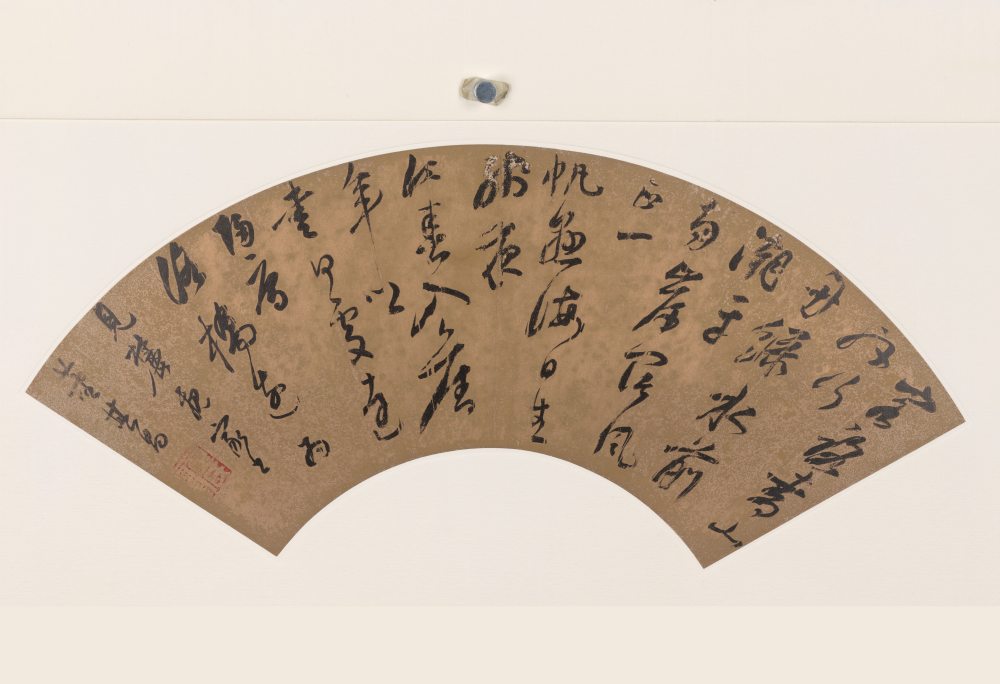 客路青山
外行
舟綠水前
潮平
兩岸闊風
正一
帆懸海日生
殘夜
江春入舊
年鄉
書何處達
歸雁
洛陽邊
董其昌